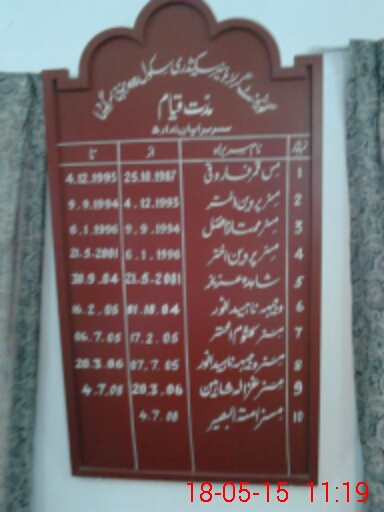 گورنمنٹ گرلز ہائر سیکنڈری سکول
مدت قیام
سربراہان ادارہ
نمبر شمار نام سربراہ از تا
1 مس قمر فاروقی 25.10.1987 4.12.1993
2 مسز پروین اختر 4.12.1993 9.9.1994
3 مسز ممتاز افضل 9.9.1994 6.1.1996
4 مسز پروین اختر 6.1.1996 21-5-2001
5 شاہدہ عزیز 21-5-2001 30.9.04
6 وجیہہ ناہید انور 01.10.04 16.2.05
7 مسز کلثوم اختر 17.2.05 06.7.05
8 مسز وجیہہ ناہید انور 07.7.05 20.3.06
9 مسز غزالہ شاہین 20.3.06 4.7.08
10 مسز امتہ البصیر 4.7.08
18-05-15 11:19